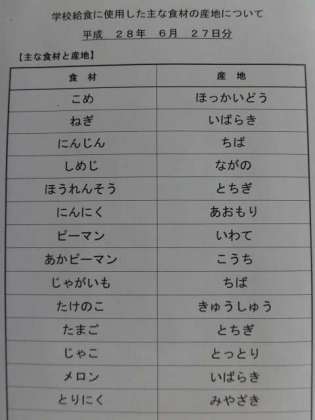 学校給食に使用した主な食材の産地について
平成 28年 6月 27日分
【主な食材と産地】
食材 産地
こめ ほっかいどう
ねぎ いばらき
にんじん ちば
しめじ ながの
ほうれんそう とちぎ
にんにく あおもり
ピーマン いわて
あかピーマン こうち
じゃがいも ちば
たけのこ きゅうしゅう
たまご とちぎ
じゃこ とっとり
メロン いばらき
とりにく みやざき